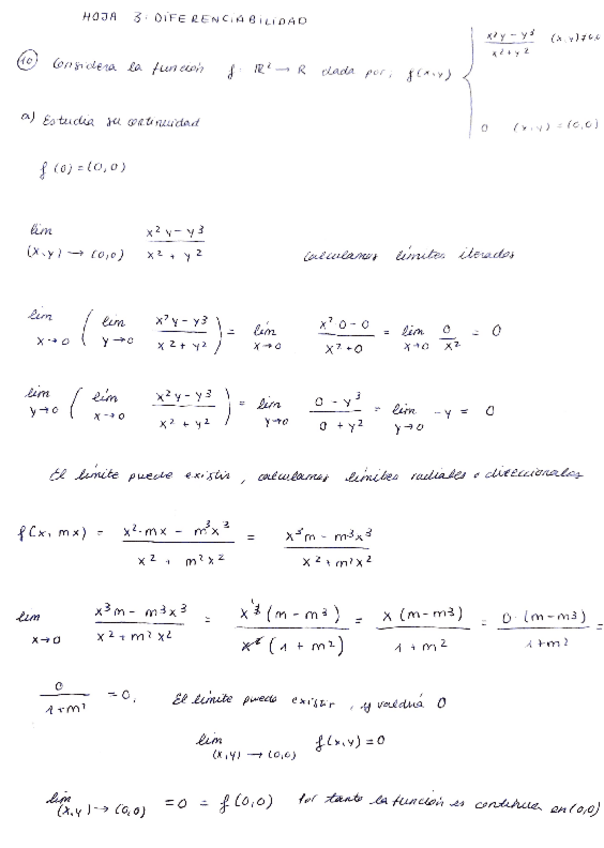 HOJA 3. DIFERENCIABILIDAD
10) Considera la función f: R² → R dada por, f(x,y) { x²y - y³ / x² + y² (x,y) ≠ 0,0
0 (x,y) = (0,0)
a) Estudia su continuidad
f(0) = (0,0)
lim (x,y) → (0,0) x²y - y³ / x² + y² calculamos límites iterados
lim x→0 ( lim y→0 x²y - y³ / x² + y² ) = lim x→0 x² 0 - 0 / x² + 0 = lim x→0 0 / x² = 0
lim y→0 ( lim x→0 x²y - y³ / x² + y² ) = lim y→0 0 - y³ / 0 + y² = lim y→0 - y = 0
El límite puede existir, calculamos límites radiales o direccionales
f(x, mx) = x²·mx - m³x³ / x² + m²x² = x³m - m³x³ / x² + m²x²
lim x→0 x³m - m³x³ / x² + m²x² = x³ (m - m³) / x² (1 + m²) = x (m - m³) / 1 + m² = 0·(m - m³) / 1 + m² =
0 / 1 + m² = 0. El límite puede existir, y valdrá 0
lim (x,y) → (0,0) f(x,y) = 0
lim (x,y) → (0,0) = 0 = f(0,0) Por tanto la función es continua en (0,0)